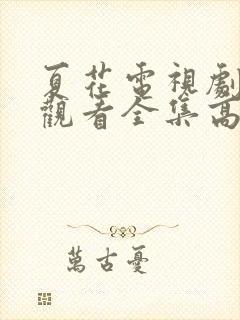 夏花電視劇
觀看全集高
萬古憂